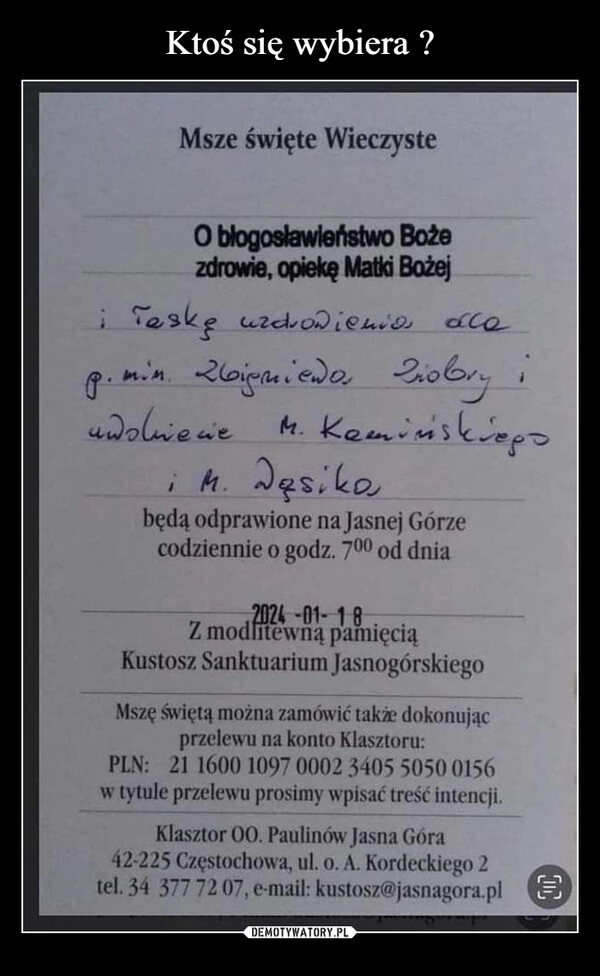 Ktoś się wybiera ?
Msze święte Wieczyste
O błogosławieństwo Boże
zdrowie, opiekę Matki Bożej
i łaskę uzdrowienia dla
p. min. Zbigniewa Ziobry i
uwolnienie M. Kamińskiego
i M. Wąsika
będą odprawione na Jasnej Górze
codziennie o godz. 7⁰⁰ od dnia
2024 -01- 18
Z modlitewną pamięcią
Kustosz Sanktuarium Jasnogórskiego
Mszę świętą można zamówić także dokonując
przelewu na konto Klasztoru:
PLN: 21 1600 1097 0002 3405 5050 0156
w tytule przelewu prosimy wpisać treść intencji.
Klasztor OO. Paulinów Jasna Góra
42-225 Częstochowa, ul. o. A. Kordeckiego 2
tel. 34 377 72 07, e-mail: kustosz@jasnagora.pl
DEMOTYWATORY.PL